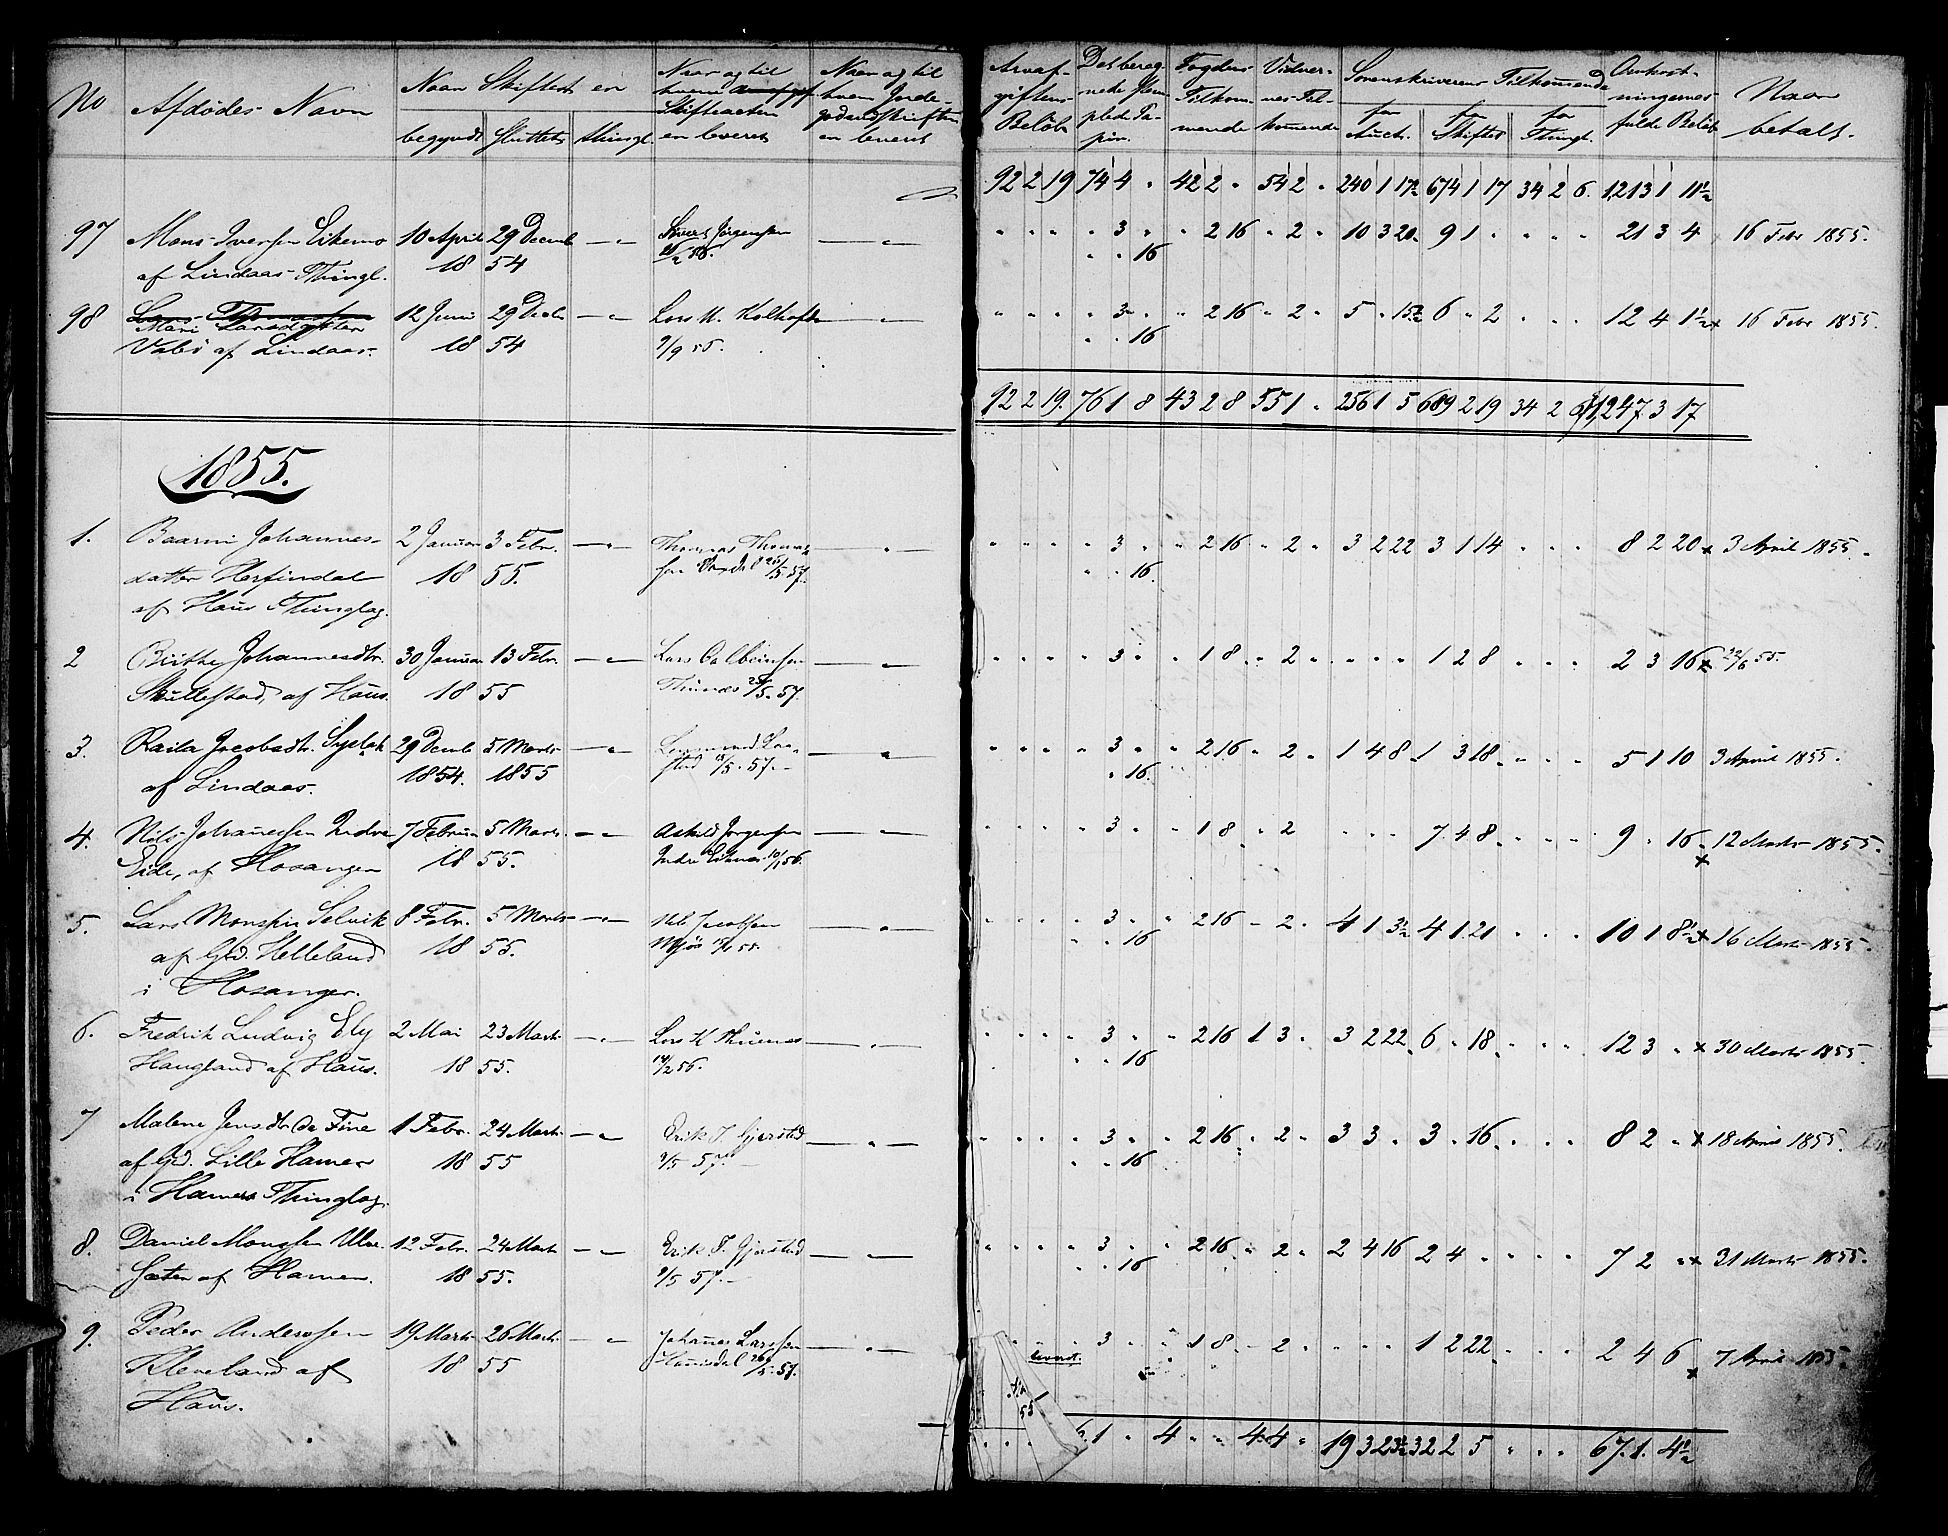 No Afdødes Navn Naar Skiftet er begyndt sluttet thingl. Naar og til hvem Skifteacten er leveret Naar og til hvem Jorde- er leveret
Arvaf- giftens Beløb Det bereg- nede Stem- plede Pa- pir. Fogdens Tilkom- mende Vidner- nes Til- kommende Sorenskriverens Tilkommende for Auct. for Skiftet for Thingl. Omkost- ningernes fulde Beløb Naar betalt.
92 2 19 74 4 " 42 2 " 54 2 " 240 1 17½ 674 1 17 34 2 6 1213 1 11½
97 Mons Iversen Eikemo 10 April 29 Decemb Jørgensen
" " " " 3 " " 2 16 " 2 " 10 3 20 9 1 " " " " 21 3 4 16 Febr 1855.
af Lindaas Thingl. 18 54
" " 16
98 Lars Thomassen 12 Juni 29 Decbr Lars M.
" " " " 3 " " 2 16 " 2 " 5 " 15½ 6 " 2 " " " 12 4 1½ x 16 Febr 1855.
Mari Larsdatter
af Lindaas. 18 54 9/9 55.
" " 16
92 2 19. 76 1 8 43 2 8 55 1 " 256 1 5 689 2 19 34 2 6 1247 3 17
1855.
1. Johannes- 2 Januar 3 Febr. Thomas Thomas-
" " " " 3 " " 2 16 " 2 " 3 2 22 3 1 14 " " " 8 2 20 x 3 April 1855.
datter Herfindal 18 55. sen 26/5 57.
" " 16.
af Haus Thinglag.
2 Birthe Johannesdtr. 30 Januar 13 Febr. Lars
" " " " 3 " " 1 8 " 2 " " " " 1 2 8 " " " 2 3 16 x 22/6 55.
Skullestad, af Haus. 18 55 Thunes 25/5. 57.
3. Raila Jacobsdtr. 29 Decemb 5 Marts
" " " " 3 " " 2 16 " 2 " 1 4 8 1 3 18 " " " 5 1 10 3 April 1855.
af Lindaas. 1854. 1855 13/5. 57.
" 16.
4. Nils Johannessen Indre 7 Februar 5 Marts Askild Jørgensen
" " " " 3 " " 1 8 " 2 " " " 7 4 8 " " " 9 " 16 x 12 Marts 1855.
Eide, af Hosanger 18 55. Indre 10/1 56.
5. Lars Monssen Solvik 8 Febr. 5 Marts Nils Jacobsen
" " " " 3 " " 2 16 " 2 " 4 1 3½ 4 1 21 " " " 10 1 8½ x 16 Marts 1855.
af Gd. Helleland 18 55.
" " 16
i Hosanger.
6. Fredrik Ludvig Ely 2 Mai 23 Marts Lars K Thunes
" " " " 3 " " 2 16 1 3 " 3 2 22 6 " 18 " " " 12 3 " x 30 Marts 1855.
Haugland af Haus. 18 55. 14/2 56.
" " 16
7 Malene Jensdtr De Fine 1 Febr. 24 Marts Erik T. Gjerstad
" " " " 3 " " 2 16 " 2 " 3 3 " 3 " 16 " " " 8 2 " x 18 April 1855.
af Gd. Lille Hamre 18 55 9/5 57.
" " 16
i Hamre Thinglag.
8. Daniel Monssen 12 Febr. 24 Marts Erik T. Gjerstad
" " " " 3 " " 2 16 " 2 " 2 4 16 2 4 " " " " 7 2 " x 31 Marts 1855.
af Hamre. 18 55. 9/5 57.
" " 16
9. Peder Andersen 19 Marts 26 Marts Johannes Larsen
3 " " 1 8 " 2 " " " " 1 2 22 " " " 2 4 6 x 7 April 1855.
Kleveland af 18 55 26/5. 57.
Haus.
1 " 4 " " 4 4 " 19 3 23½ 32 2 5 " " " 67. 1. 4½